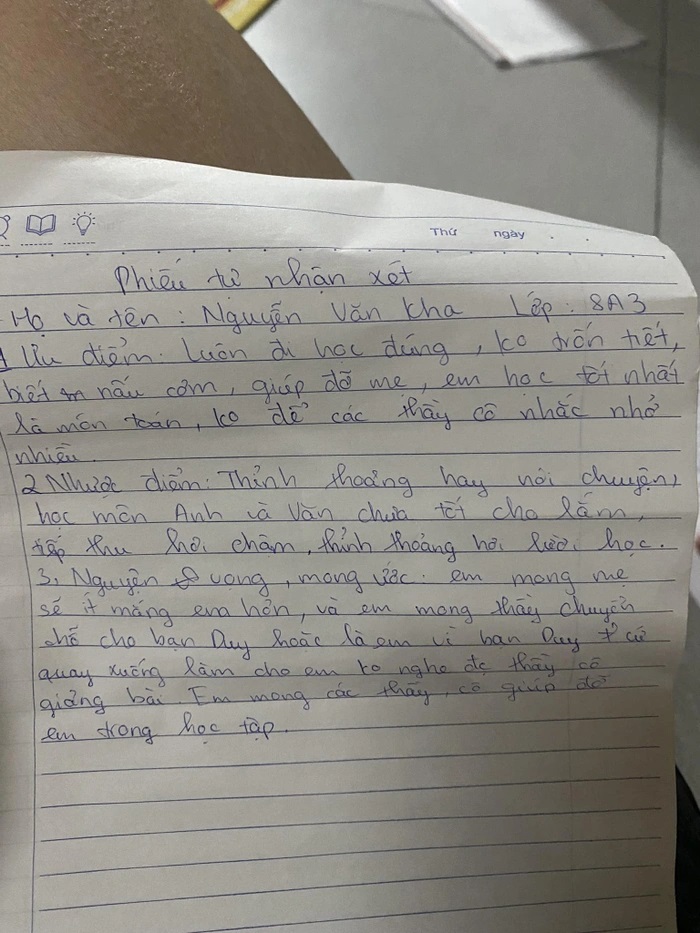 Thứ ngày
Phiếu tử nhận xét
Họ và tên : Nguyễn Văn Kha Lớp : 8A3
1 Ưu điểm: Luôn đi học đúng, ko trốn tiết,
biết nấu cơm, giúp đỡ mẹ, em học tốt nhất
là môn toán, ko để các thầy cô nhắc nhở
nhiều.
2 Nhược điểm: Thỉnh thoảng hay nói chuyện,
học môn Anh và Văn chưa tốt cho lắm,
tiếp thu hơi chậm, thỉnh thoảng hơi lười học.
3, Nguyện vọng, mong ước: em mong mẹ
sẽ ít mắng em hơn, và em mong thầy chuyển
chỗ cho bạn Duy hoặc là em vì bạn Duy cứ
quay xuống làm cho em ko nghe đc thầy cô
giảng bài. Em mong các thầy, cô giúp đỡ
em trong học tập.